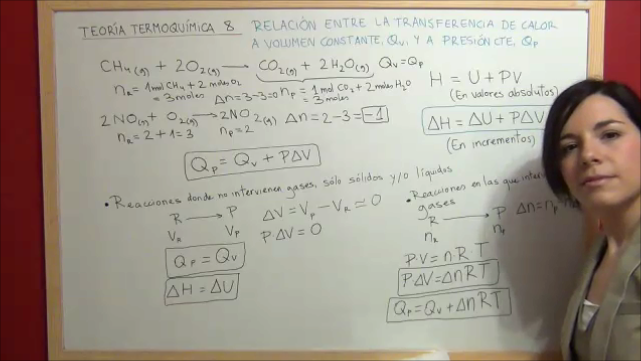 TEORÍA TERMOQUÍMICA 8 RELACIÓN ENTRE LA TRANSFERENCIA DE CALOR
A VOLUMEN CONSTANTE, Qv, Y A PRESIÓN CTE, Qp
CH4(g) + 2O2(g) → CO2(g) + 2H2O(g) Qv = Qp
nR = 1 mol CH4 + 2 moles O2
= 3 moles Δn = 3-3 = 0 nP = 1 mol CO2 + 2 moles H2O
= 3 moles
2NO(g) + O2(g) → 2NO2(g) Δn = 2-3 = -1
nR = 2+1 = 3 nP = 2
Qp = Qv + PΔV
H = U + PV
(En valores absolutos)
ΔH = ΔU + PΔV
(En incrementos)
• Reacciones donde no intervienen gases, sólo sólidos y/o líquidos
R → P ΔV = VP - VR ≃ 0
VR VP P·ΔV = 0
Qp = Qv
ΔH = ΔU
• Reacciones en las que
gases
R → P Δn = nP
nR nP
P·V = n·R·T
PΔV = ΔnRT
Qp = Qv + ΔnRT